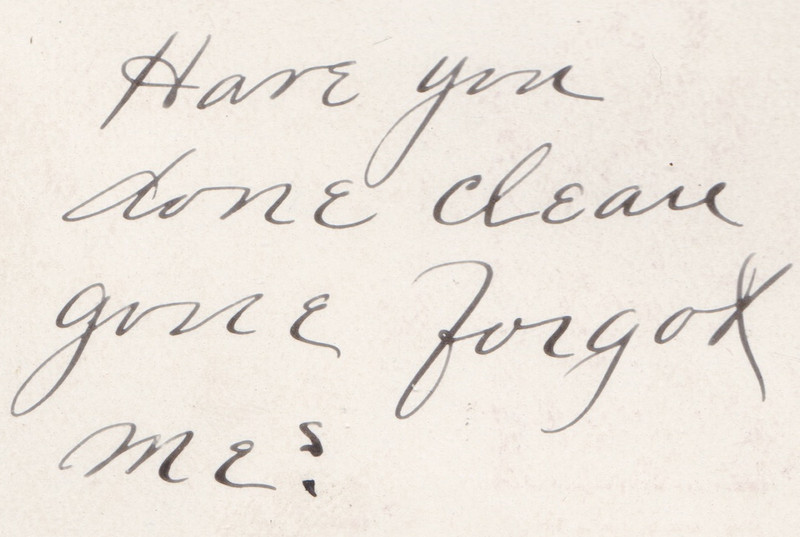 Have you
done clean
gone forgot
me?